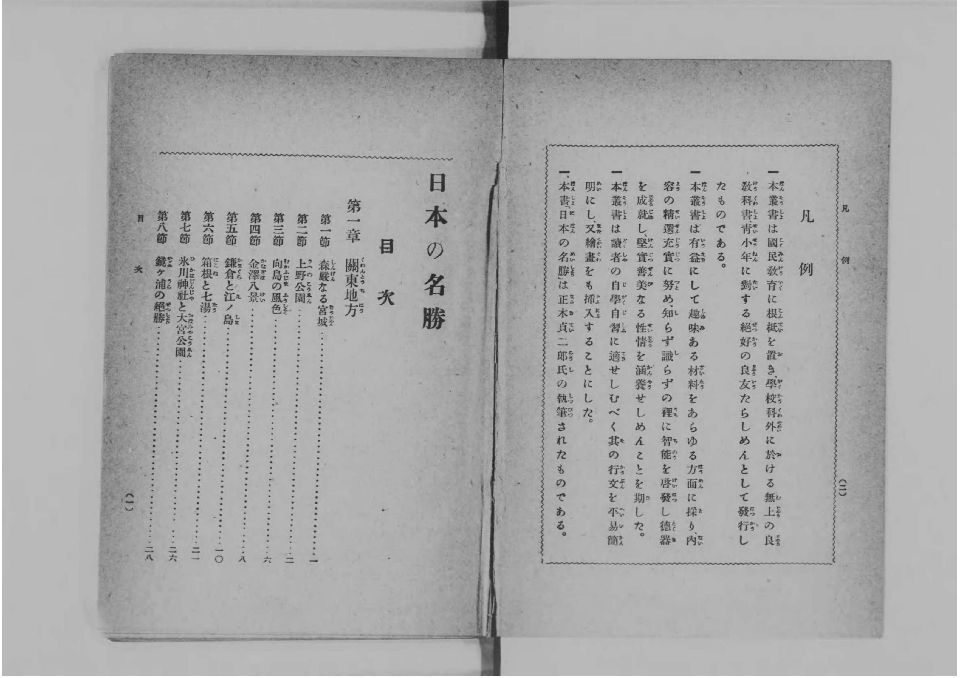 凡例
(二)
凡例
一、本叢書は國民敎育に根柢を置き、學校科外に於ける無上の良
敎科書靑少年に對する絕好の良友たらしめんとして發行し
たものである。
一、本叢書は有益にして趣味ある材料をあらゆる方面に採り、內
容の精選充實に努め、知らず識らずの裡に智能を啓發し德器
を成就し、堅實善美なる性情を涵養せしめんことを期した。
一、本叢書は讀者の自學自習に適せしむべく其の行文を平易簡
明にし、又繪畫をも揷入することにした。
一、本書日本の名勝は正木貞二郞氏の執筆されたものである。
日本の名勝
目次
第一章 關東地方
第一節 森嚴なる宮城……一
第二節 上野公園……二
第三節 向島の風色……六
第四節 金澤八景……八
第五節 鎌倉と江ノ島……一〇
第六節 箱根と七湯……二一
第七節 氷川神社と大宮公園……二六
第八節 鏡ヶ浦の絕勝……二八
目次
(一)